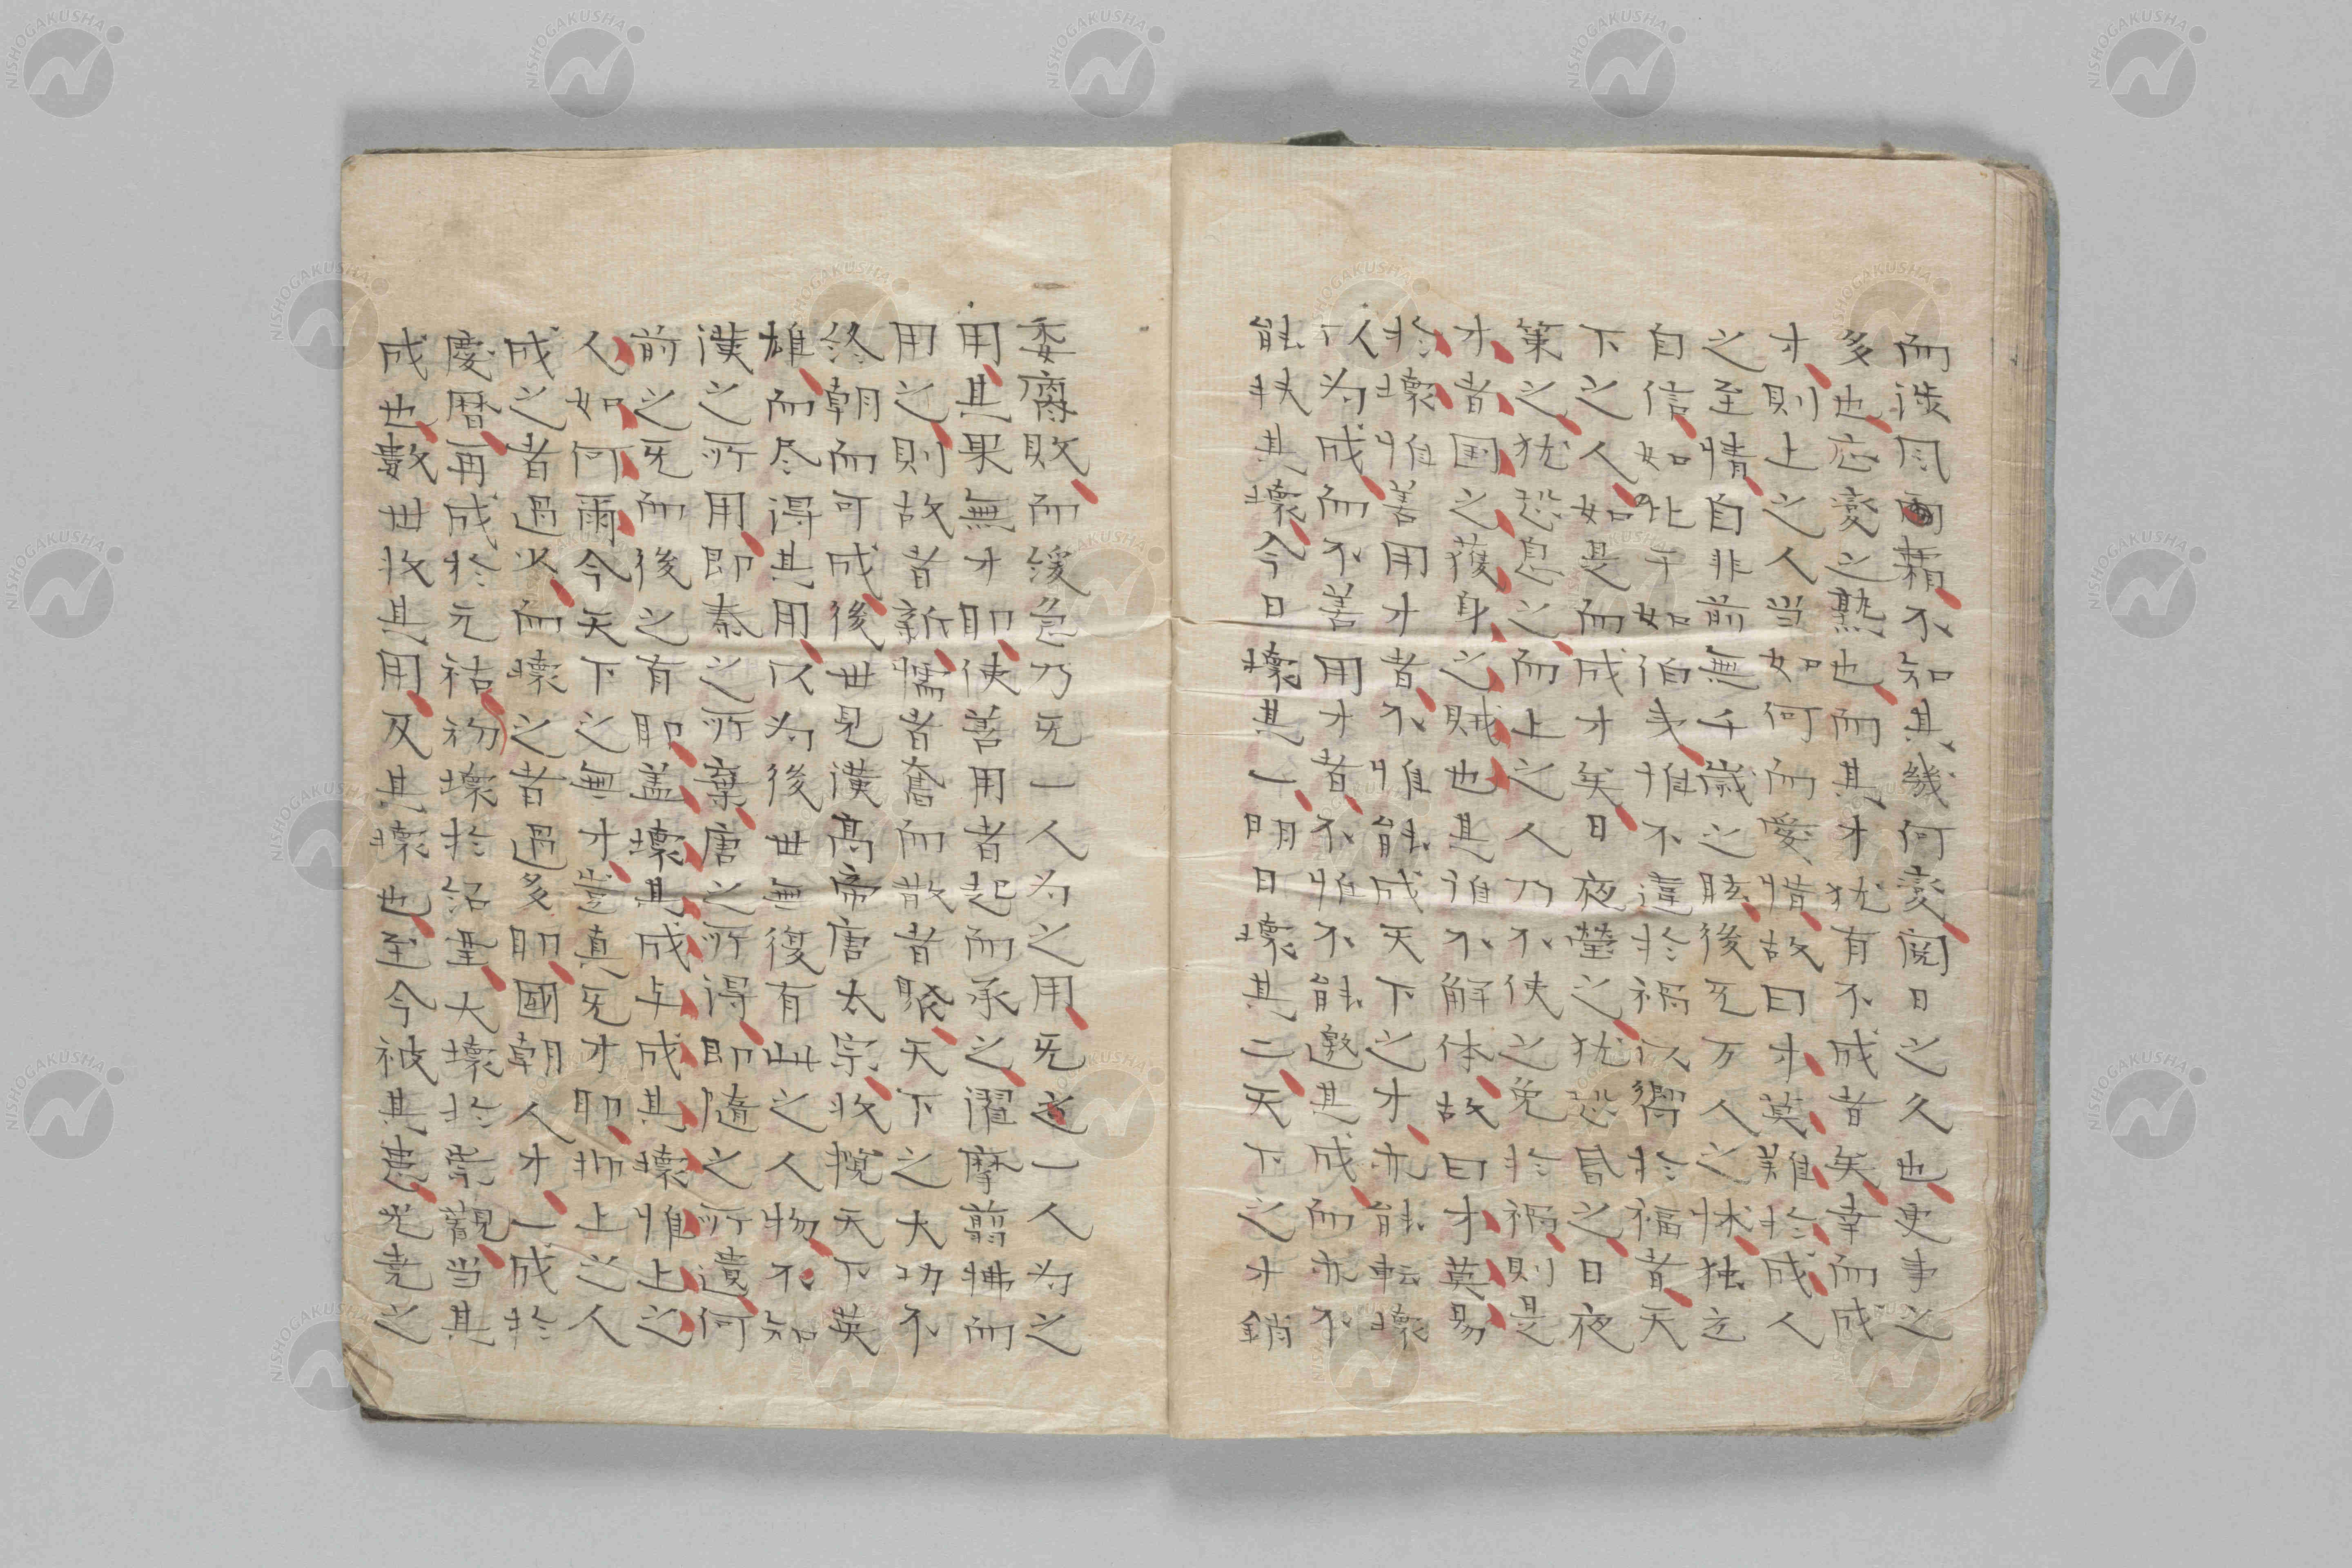 而渉風雨霜不知其幾何変閲日之久也更事之
多也応変之熟也而其才猶有不成者矣幸而成
才則上之人当如何而愛惜故曰才莫難於成人
之至情自非前無千歳之眩後无万人之怵独立
自信如此于如伯夷惟不違於禍以嚮於福者天
下之人如是而成才矣日夜営之猶恐昏之日夜
策之猶恐息之而上之人乃不使之免於禍則是
才者国之蓷身之賊也其誰不解体故曰才莫易
於壊惟善用才者不惟能成天下之才亦能転壊
以為成而不善用才者不惟不能邀其成而亦不
能扶其壊今日壊其一明日壊其二天下之才銷
委腐敗而緩急乃无一人為之用无一人為之
用其果無才耶使善用者起而承之濯摩翦拂而
用之則故者新懦者奮而散者聚天下之大功不
終朝而可成後世見漢高帝唐太宗收攬天下英
雄而尽得其用以為後世無復有此之人物不知
漢之所用即秦之所棄唐之所得即隋之所遺何
前之无而後之有耶盖壊其成与成其壊惟上之
人如何爾今天下之無才豈真无才耶抑上之人
成之者過少而壊之者過多耶國朝人才一成於
慶暦再成於元祐初壊於紹聖大壊於崇観当其
成也数世收其用及其壊也至今被其患光尭之
NISHOGAKUSHA